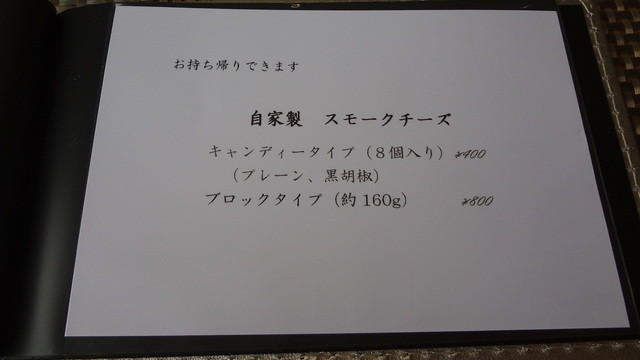 お持ち帰りできます
自家製　スモークチーズ
キャンディータイプ（８個入り）¥400
（プレーン、黒胡椒）
ブロックタイプ（約160g）　¥800